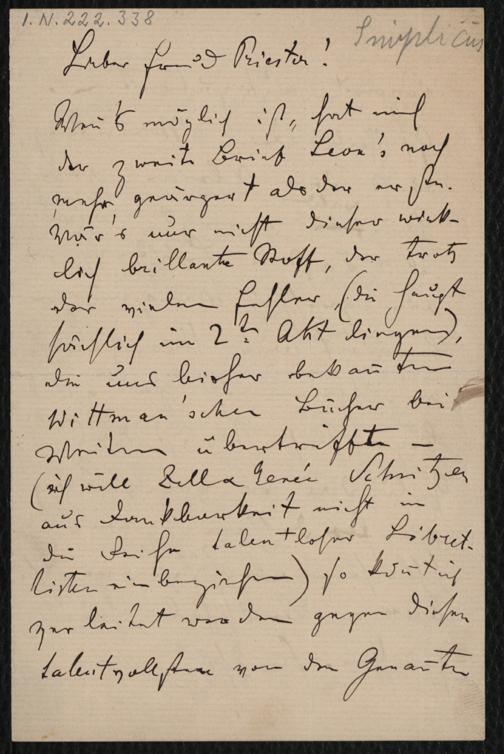 I.N. 222.338
Simplicius
Lieber Freund Priester!
Wenn's möglich ist, hat mich
der zweite Brief Leon's noch
mehr geärgert als der erste.
Wär's nur nicht dieser wirk-
lich brillante Stoff, der trotz
der vielen Fehler (die haupt
sächlich im 2t Akt liegen),
die uns bisher bekannten
Wittman'schen Bücher bei
Weitem übertrifft –
(ich will Zell & Genée Schnitzer
aus Dankbarkeit nicht in
die Reihe talentloser Libret-
listen einbeziehen) so könnt ich
verleitet werden gegen diesen
talentvollsten von den Genannten